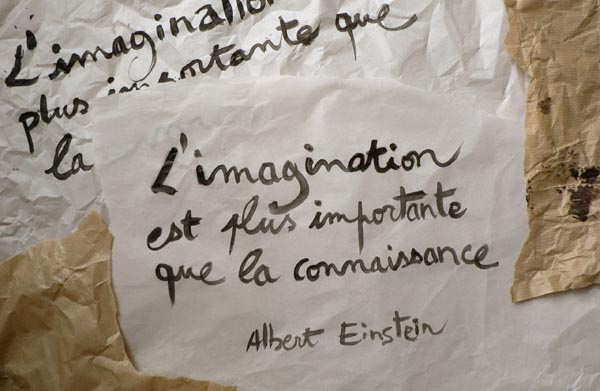 L'imagination
plus importante que
la
L'imagination
est plus importante
que la connaissance
Albert Einstein